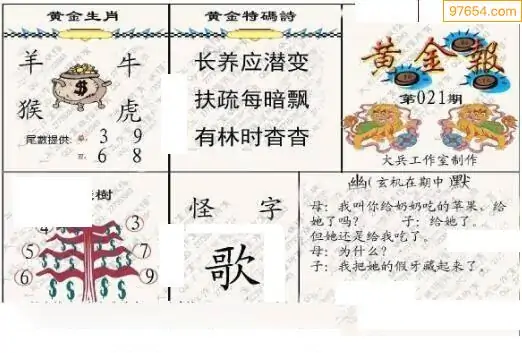 97654.com
黄金生肖
羊 牛
猴 虎
尾數提供: 單: 3 9
雙: 6 8
黄金特碼詩
长养应潜变
扶疏每暗飘
有林时杳杳
黄金報
第021期
大兵工作室制作
樹
③
⑤ ⑦
⑥ ⑨
怪 字
歌
幽(玄机在期中 默
母:我叫你给奶奶吃的苹果、给
她了吗? 子:给她了。
但她还是给我吃了。
母:为什么?
子:我把她的假牙藏起来了。